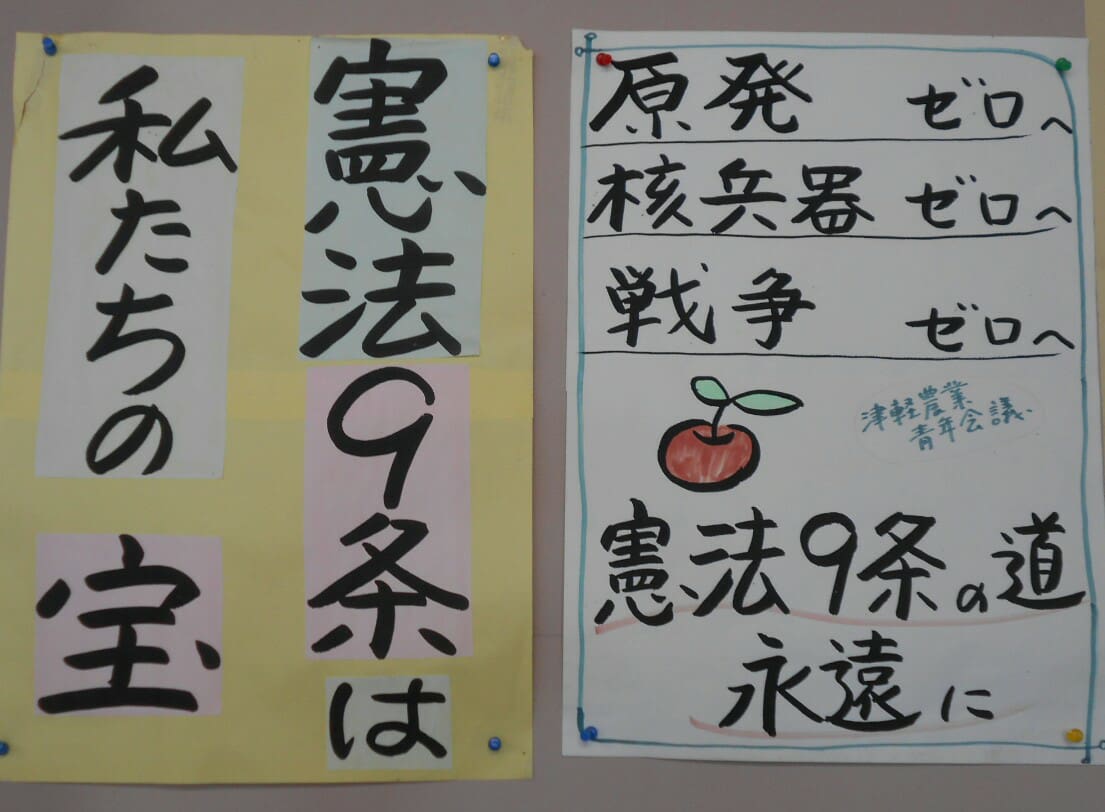 憲法9条は
私たちの
宝
原発 ゼロへ
核兵器 ゼロへ
戦争 ゼロへ
津軽農業
青年会議
憲法9条の道
永遠に